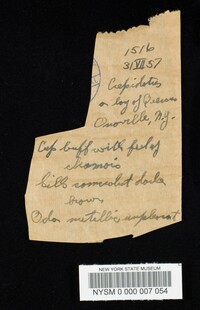 1516
31 VII 57
Crepidotus
on log of Quercus
Onoville, N.Y.
Cap buff with feel of
chamois
Gills somewhat dark
brown
Odor metallic unpleasant
NEW YORK STATE MUSEUM
NYSM 0 000 007 054